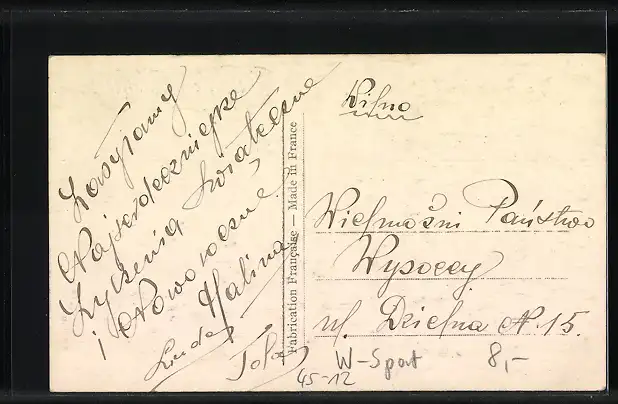 Zasyłamy
Najserdeczniejsze
Życzenia Świąteczne
i Noworoczne
Halina
Linda
Tola
Fabrication Française — Made in France
Wilno
Wielmożni Państwo
Wysoccy
ul. Dzielna № 15.
W-Spat
8,-
45-12